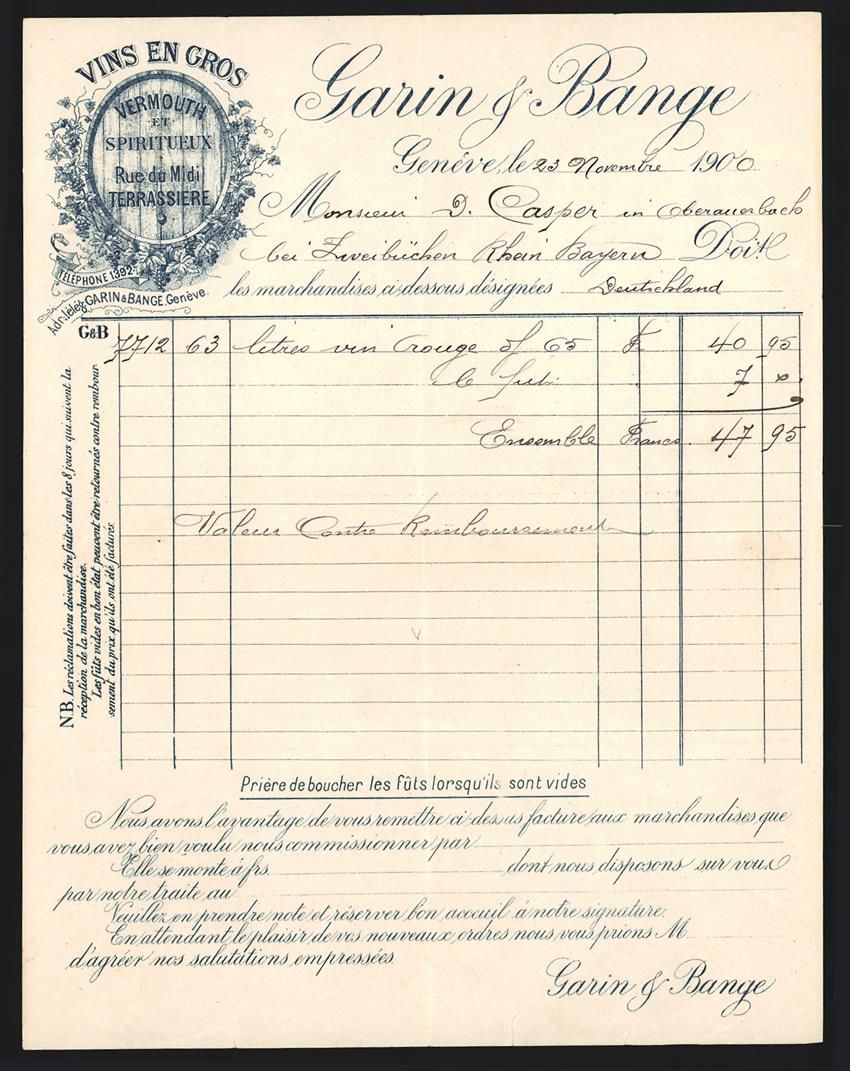 VINS EN GROS
VERMOUTH
ET
SPIRITUEUX
Rue du Midi
TERRASSIÈRE
TÉLÉPHONE 1392
Adr: télég. GARIN & BANGE. Genève.
Garin & Bange
Genève, le 23 Novembre 1900
Monsieur D. Casper in Oberauerbach
bei Zweibüchen Rhein Bayern Doit
les marchandises ci-dessous désignées Deutschland
G&B
7712 63 litres vin rouge % 65 F. 40 95
le fut: 7 ".
Ensemble Francs. 47 95
Valeur Contre Remboursement
N.B. Les réclamations doivent être faites dans les 8 jours qui suivent la
réception de la marchandise.
Les fûts vides en bon état peuvent être retournés contre rembour-
sement du prix qu'ils ont été facturés.
Prière de boucher les fûts lorsqu'ils sont vides
Nous avons l'avantage de vous remettre ci-dessus facture aux marchandises que
vous avez bien voulu nous commissionner par
Elle se monte à frs. dont nous disposons sur vous
par notre traite au
Veuillez en prendre note et réserver bon acceuil à notre signature.
En attendant le plaisir de vos nouveaux ordres, nous vous prions M
d'agréer nos salutations empressées
Garin & Bange